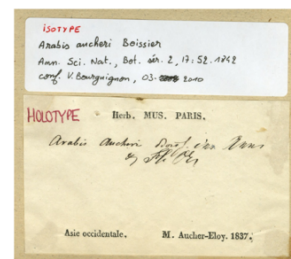 ISOTYPE
Arabis aucheri Boissier
Ann. Sci. Nat., Bot. sér. 2, 17: 52. 1842
conf. V. Bourguignon, 03- 2010
HOLOTYPE Herb. MUS. PARIS.
Arabis Aucheri Boiss. in Ann.
Asie occidentale. M. Aucher-Eloy. 1837.